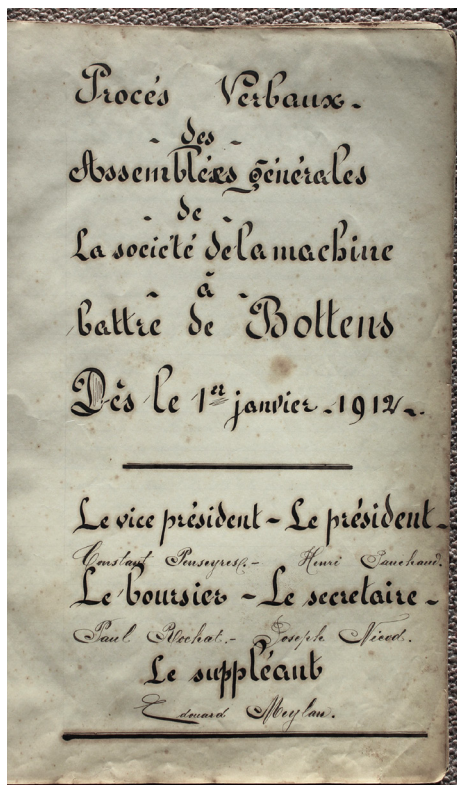 Procés Verbaux.
des
Assemblées générales
de
La société de la machine
à
battre de Bottens
Dès le 1er janvier 1912.
Le vice président - Le président -
Constant Penseyres. - Henri Panchaud.
Le boursier - Le secretaire -
Paul Rochat. - Joseph Nicod.
Le suppléant
Edouard Meylan.